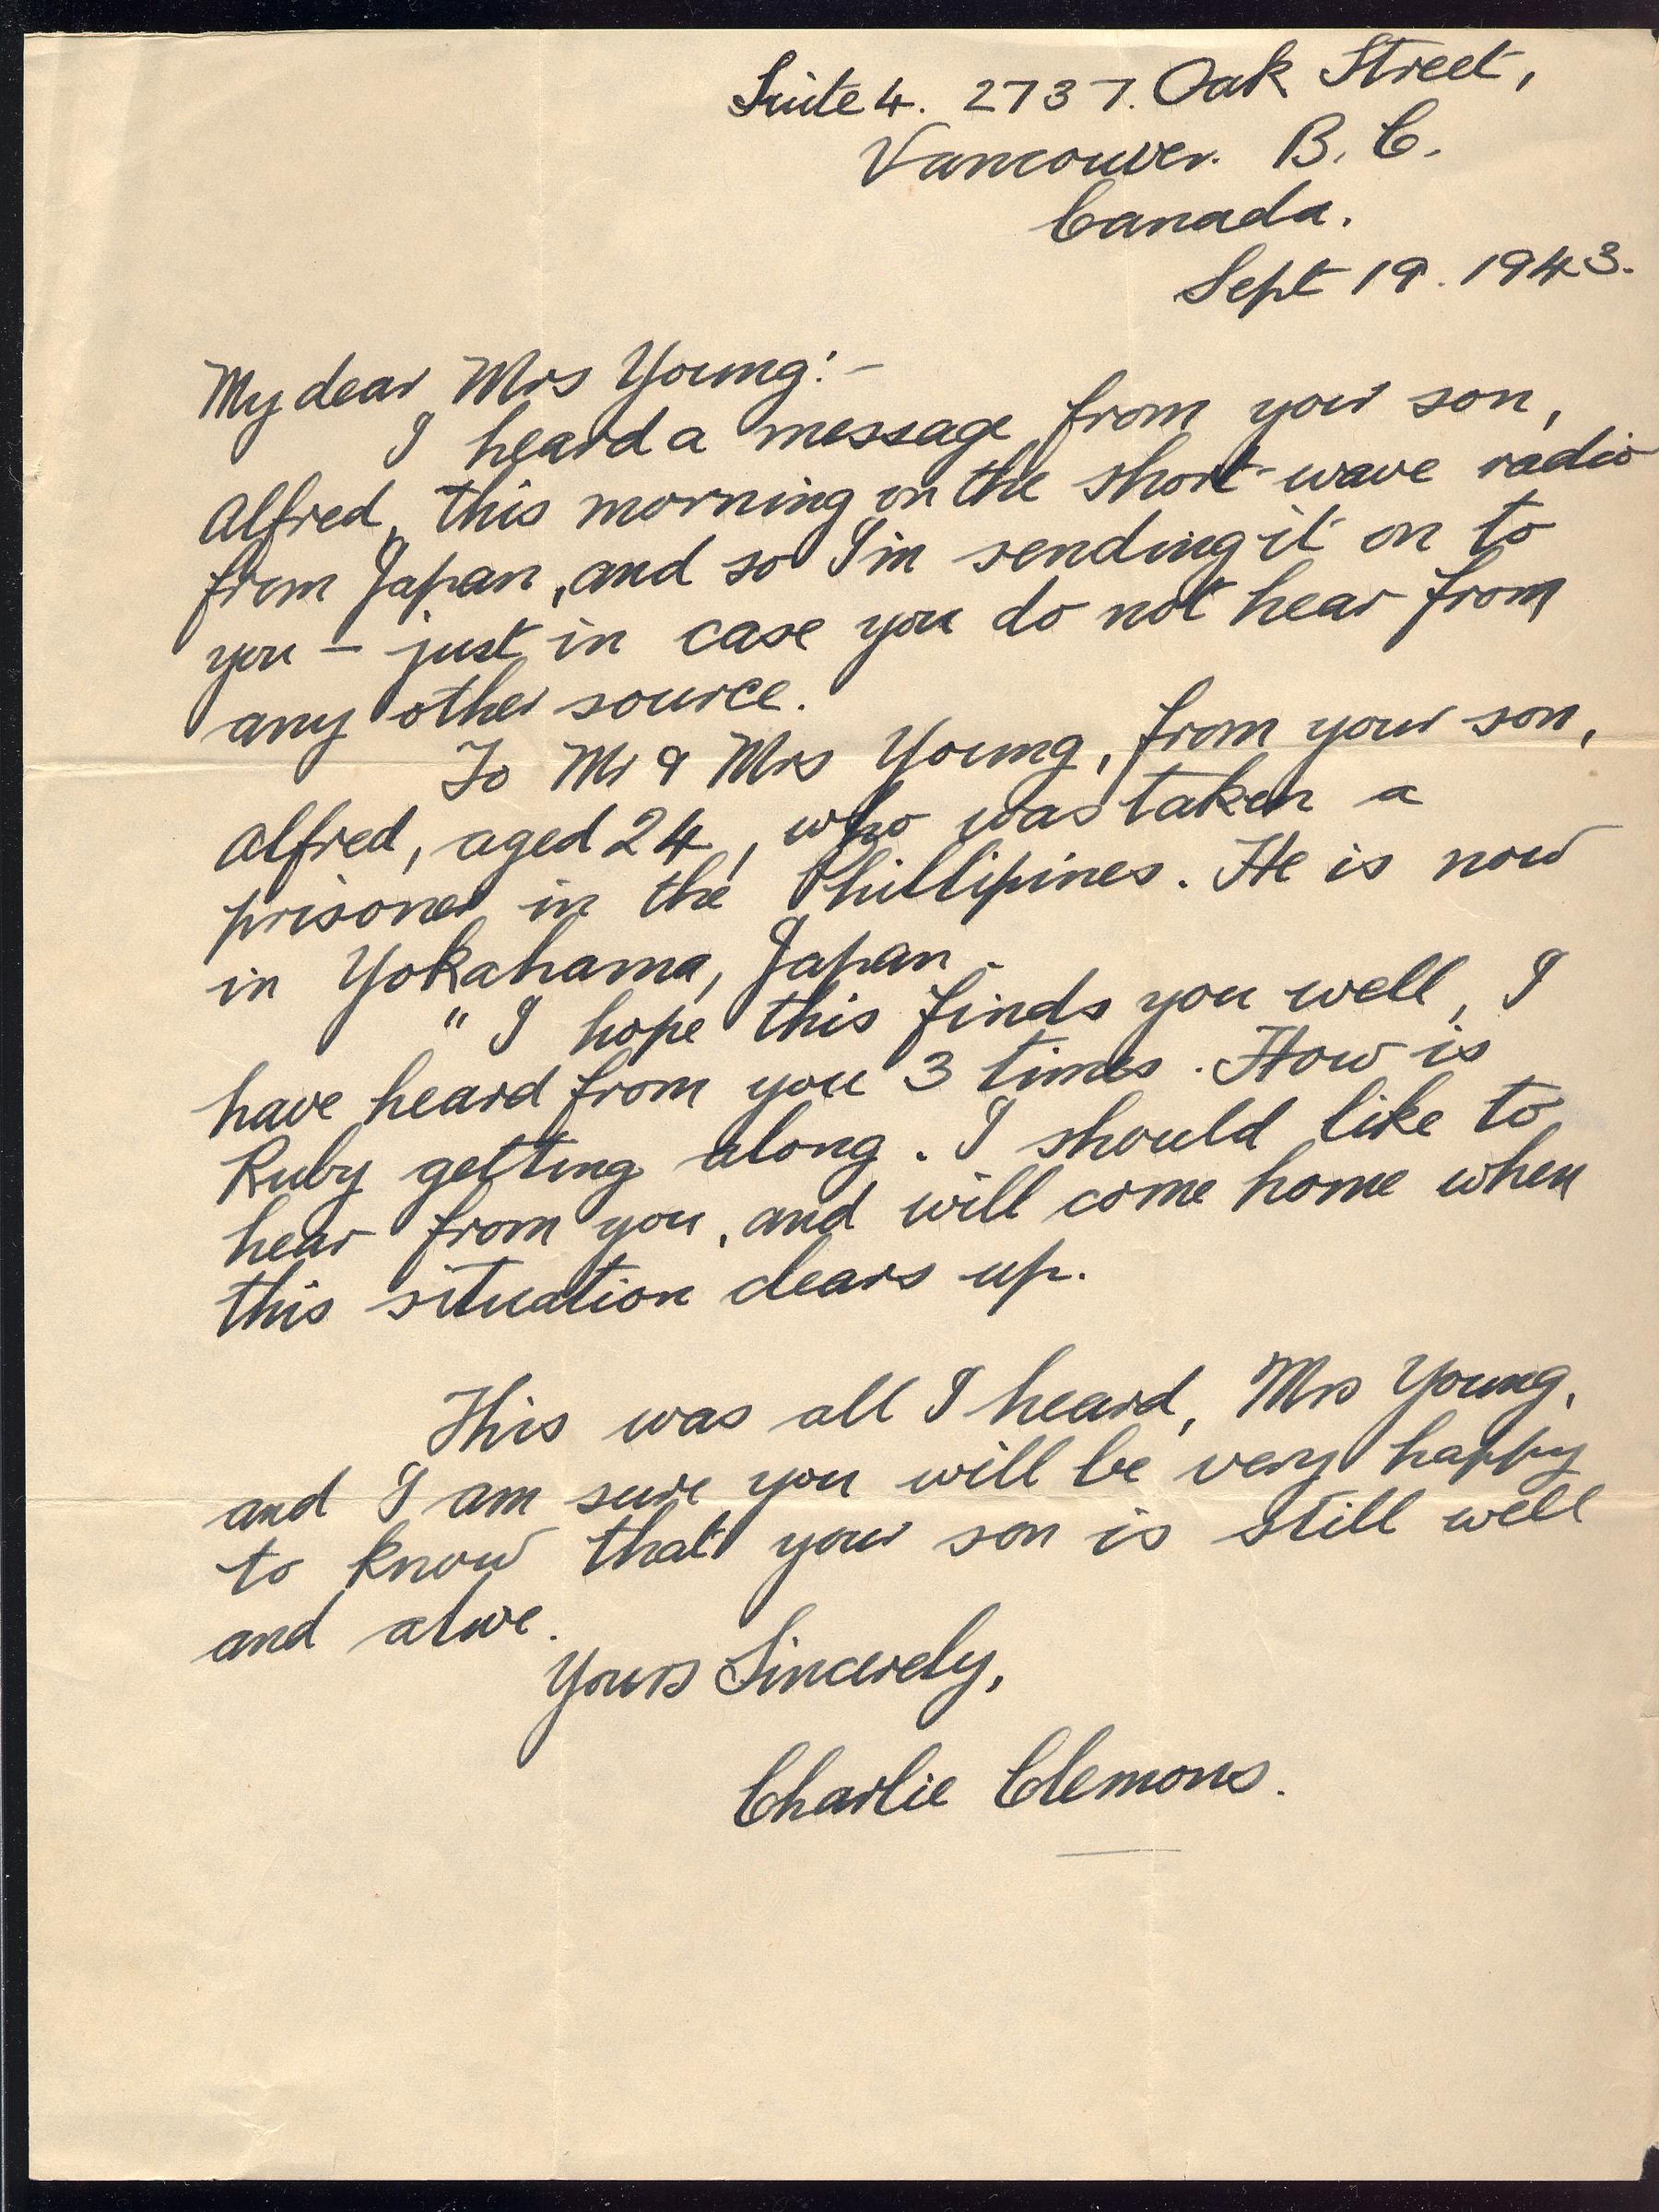 Suite 4. 2737. Oak Street,
Vancouver. B. C.
Canada.
Sept 19. 1943.
My dear Mrs Young:-
I heard a message from your son,
Alfred, this morning on the short-wave radio
from Japan, and so I'm sending it on to
you - just in case you do not hear from
any other source.
To Mr & Mrs Young, from your son,
Alfred, aged 24, who was taken a
prisoner in the Phillipines. He is now
in Yokahama, Japan.
"I hope this finds you well, I
have heard from you 3 times. How is
Ruby getting along. I should like to
hear from you, and will come home when
this situation clears up.
This was all I heard, Mrs Young,
and I am sure you will be very happy
to know that your son is still well
and alive.
Yours Sincerely,
Charlie Clemons.